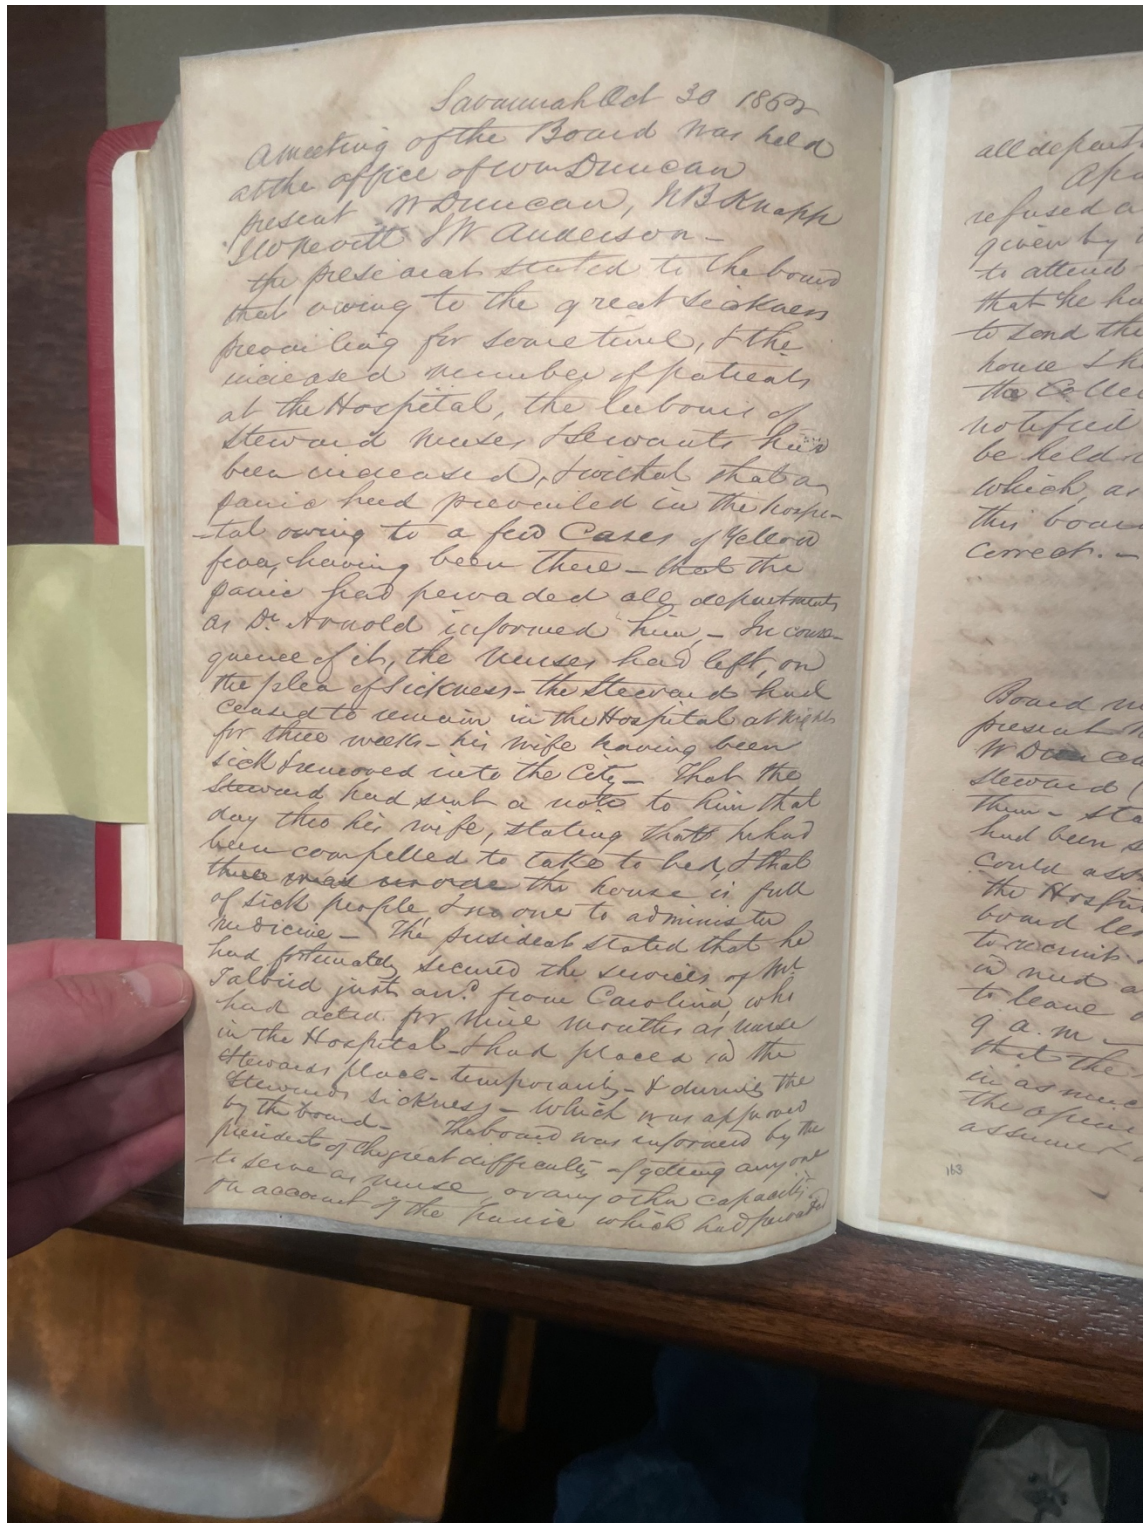 Savannah Oct 30 186
A meeting of the Board was held
at the office of Wm Duncan
present W Duncan, N B Knapp
J W Nevitt J W Anderson -
the president stated to the board
that owing to the great sickness
prevailing for some time, & the
increased number of patients
at the Hospital, the labours of
Steward nurses & Servants had
been increased, & withal that a
panic had prevailed in the hospi-
-tal owing to a few Cases of Yellow
fever, having been there - that the
panic had pervaded all departments
as Dr. Arnold informed him, - In conse-
quence of it, the nurses had left, on
the plea of Sickness - the Steward had
ceased to remain in the Hospital at night
for three weeks - his wife having been
sick & removed into the City - That the
Steward had sent a note to him that
day thro his wife, stating that he had
been compelled to take to bed, & that
the house is full
of sick people, & no one to administer
medicine - The president stated that he
had fortunately secured the services of Mr
Talbird just arrd. from Carolina, who
had acted for nine months as nurse
in the Hospital - & had placed in the
Stewards place - temporarily - & during the
Stewards sickness - which was approved
by the board - The board was informed by the
president of the great difficulty of getting any one
to serve as nurse, or any other capacity
on account of the panic which had pervaded
all depart
refused a
given by
to attend
that he ha
to send the
house & h
the Colle
notified
be held
which, as
this boar
correct. -
Board m
present
W Duncan
Steward
them - sta
had been s
could ass
the Hospi
board le
to recruit
in mind a
to leave
9 a.m -
that the
in as muc
the open
assumed
163